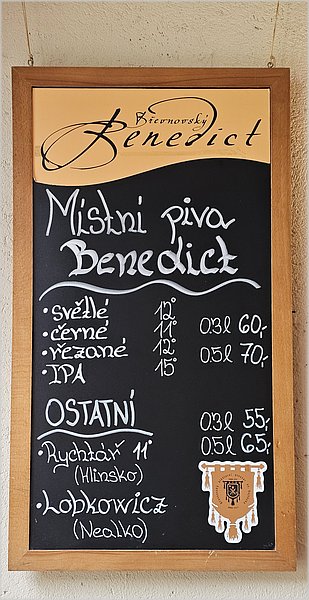 Břevnovský
Benedict
Místní piva
Benedict
• světlé 12°
• černé 11° 0.3l 60,-
• řezané 12° 0.5l 70,-
• IPA 15°
OSTATNÍ 0.3l 55,-
• Rychtář 11° 0.5l 65,-
(Hlinsko)
• Lobkowicz
(Nealko)